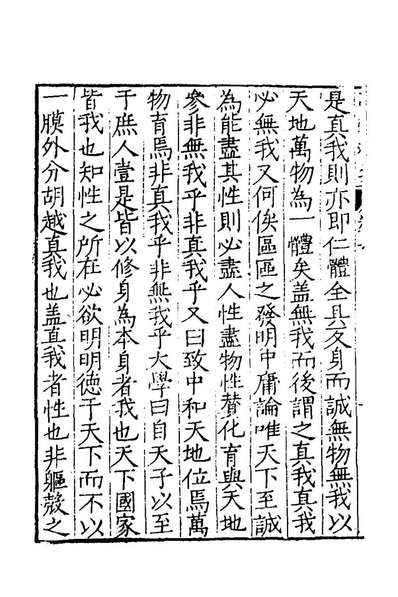 是真我則亦即仁體全具反身而誠無物無我以
天地萬物為一體矣盖無我而後謂之真我真我
必無我又何俟區區之發明中庸論唯天下至誠
為能盡其性則必盡人性盡物性賛化育與天地
叅非無我乎非真我乎又曰致中和天地位焉萬
物育焉非真我乎非無我乎大學曰自天子以至
于庶人壹是皆以修身為本身者我也天下國家
皆我也知性之所在必欲明明德于天下而不以
一膜外分胡越真我也盖真我者性也非軀殼之